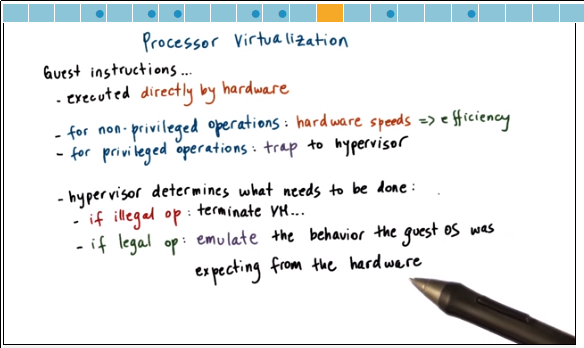 Processor Virtualization
Guest instructions...
- executed directly by hardware
- for non-privileged operations: hardware speeds => efficiency
- for privileged operations: trap to hypervisor
- hypervisor determines what needs to be done:
- if illegal op: terminate VM...
- if legal op: emulate the behavior the guest OS was
expecting from the hardware